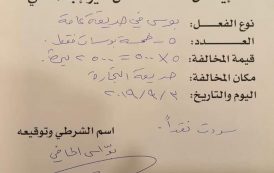 نوع الفعل: بوس في حديقة عامة
العدد: ٥ - خمسة بوسات فقط.
قيمة المخالفة: ٥ × ٥٠٠ = ٢٥٠٠ ليرة
مكان المخالفة: حديقة التجارة
اليوم والتاريخ: ٢٠١٩/٩/٣
سددت نقداً.
اسم الشرطي وتوقيعه